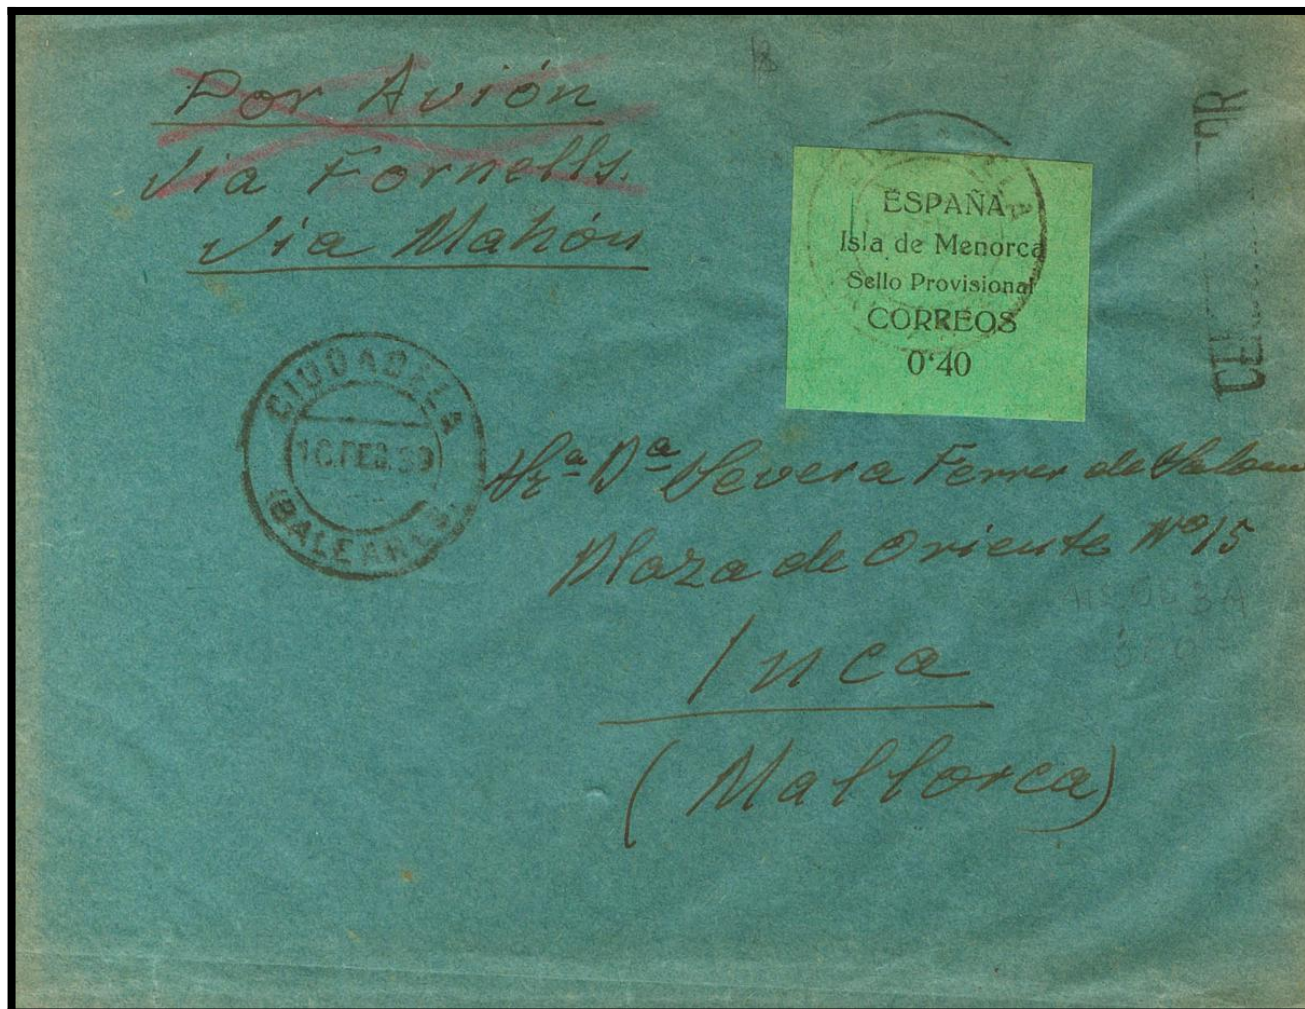 Por Avión
Via Fornells.
Via Mahón
ESPAÑA
Isla de Menorca
Sello Provisional
CORREOS
0'40
CIUDADELA
FEB.39
(BALEARES)
Sra Dª Severa Ferrer de
Plaza de Oriente Nº 15
Inca
(Mallorca)